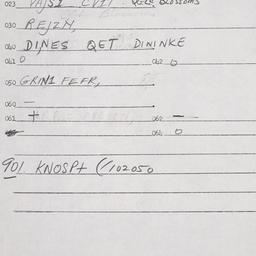 023 VAJSI CVIT QELE BLOSSOMS
030 REJZN,
040 DINES QET DININKE
041 0 042 0
050 GRINI FEFR,
060 —
061 + 062 —
064 0
901 KNOSP+ (/102050